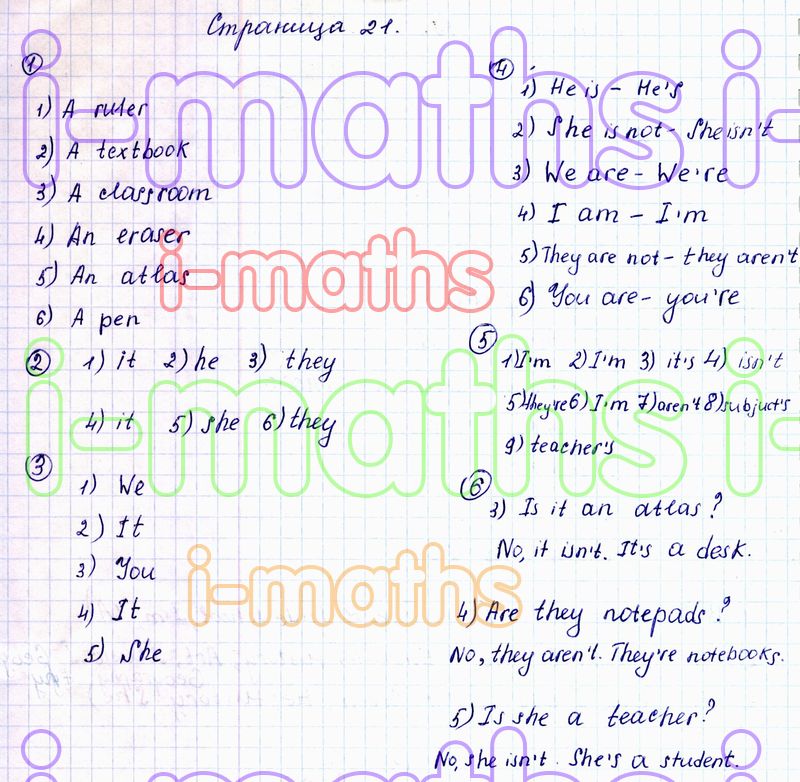 Страница 21.
1
1) A ruler
2) A textbook
3) A classroom
4) An eraser
5) An atlas
6) A pen
2 1) it 2) he 3) they
4) it 5) she 6) they
3
1) We
2) It
3) You
4) It
5) She
4
1) He is - He's
2) She is not - She isn't
3) We are - We're
4) I am - I'm
5) They are not - they aren't
6) You are - you're
5
1) I'm 2) I'm 3) it's 4) isn't
5) they're 6) I'm 7) aren't 8) subject's
9) teacher's
6
3) Is it an atlas?
No, it isn't. It's a desk.
4) Are they notepads?
No, they aren't. They're notebooks.
5) Is she a teacher?
No, she isn't. She's a student.
i-maths i-maths
i-maths
i-maths i-maths
i-maths